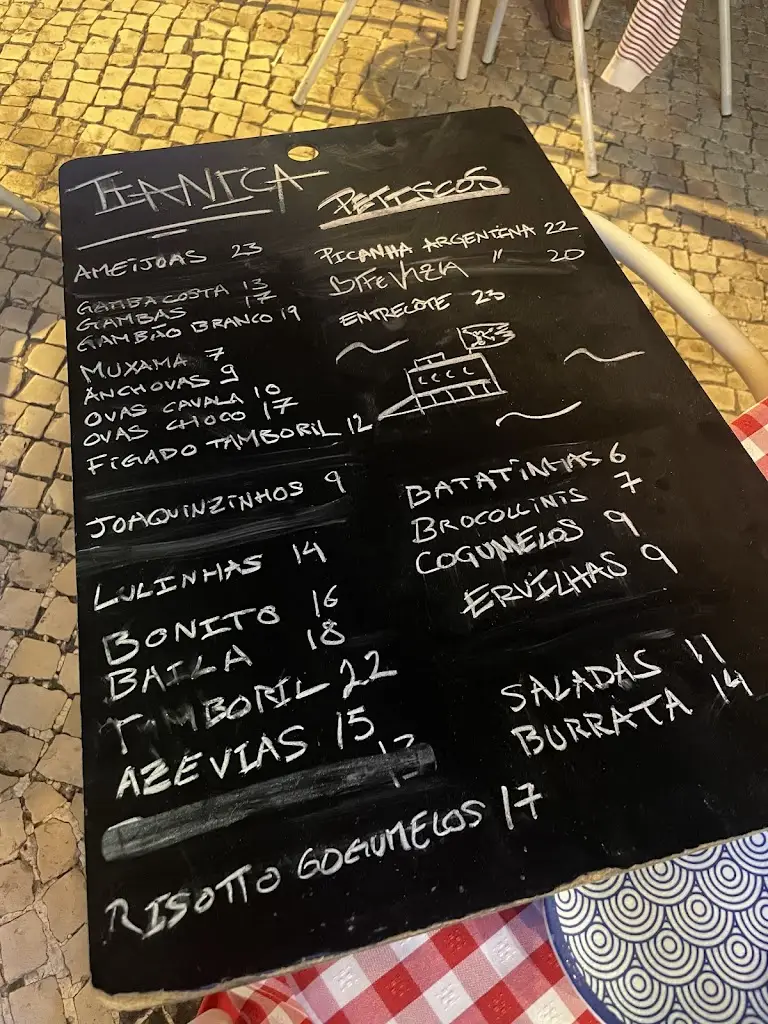 TIANICA PETISCOS
AMEIJOAS 23
GAMBA COSTA 13
GAMBAS 17
GAMBÃO BRANCO 19
MUXAMA 7
ANCHOVAS 9
OVAS CAVALA 10
OVAS CHOCO 17
FIGADO TAMBORIL 12
JOAQUINZINHOS 9
LULINHAS 14
BONITO 16
BAILA 18
TAMBORIL 22
AZEVIAS 15
13
RISOTTO COGUMELOS 17
PICANHA ARGENTINA 22
BIFE VAZIA " 20
ENTRECÔTE 23
BATATINHAS 6
BROCOLLINIS 7
COGUMELOS 9
ERVILHAS 9
SALADAS 11
BURRATA 14